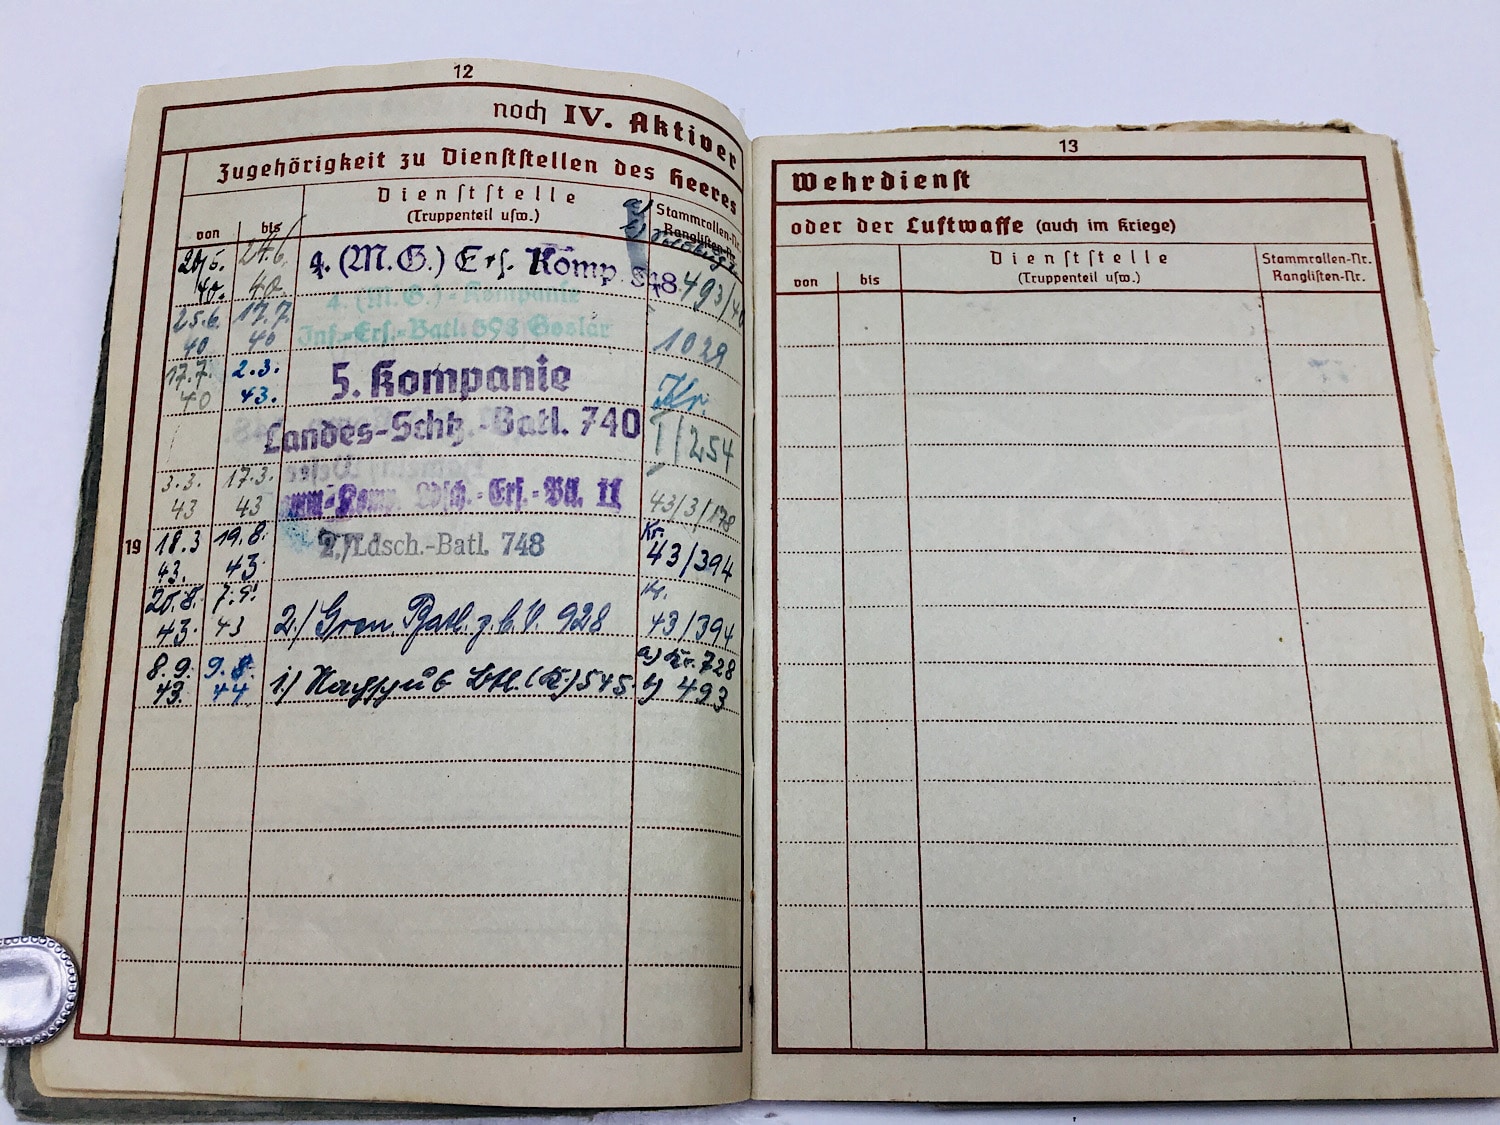 12
noch IV. Aktiver
Zugehörigkeit zu Dienststellen des Heeres
von
bis
Dienststelle
(Truppenteil usw.)
Stammrollen-Nr.
Ranglisten-Nr.
a)
b)
24.6.
40.
40.
4. (M.G.) Ers. Komp.
493/40
25.6. 17.7.
40 40
4. (M.G.)-Kompanie
Inf.-Ers.-Batl. 593 Goslar
1029
17.7. 2.3.
40 43.
5. Kompanie
Kr.
Landes-Schtz.-Batl. 740
1/254
3.3. 17.3.
43 43
Ldsch.-Ers.-Btl. 11
43/3/178
19
18.3 19.8.
43. 43
2./Ldsch.-Batl. 748
Kr.
43/394
20.8. 7.9.
43. 43
2./ Gren. Batl. z.b.V. 928
Kr.
43/394
8.9. 9.8.
43. 44
1./ Nachschub Btl. (K) 545
a) Kr. 728
b) 493
13
Wehrdienst
oder der Luftwaffe (auch im Kriege)
von
bis
Dienststelle
(Truppenteil usw.)
Stammrollen-Nr.
Ranglisten-Nr.